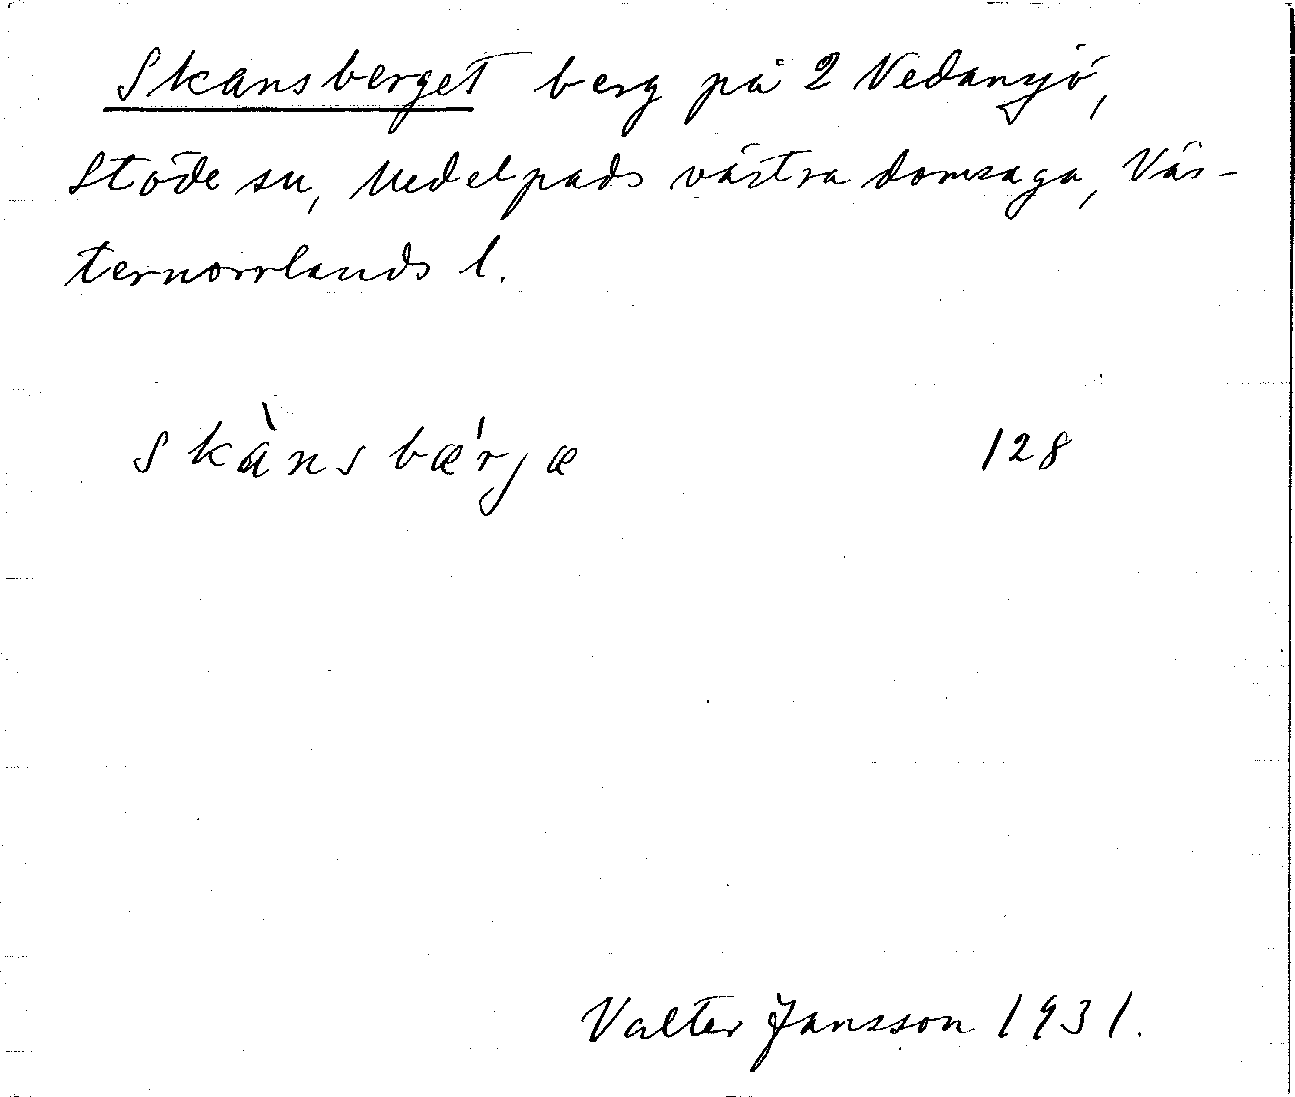 Skansberget berg på 2 Nedansjö,
Stöde sn, Medelpads västra domsaga, Väs-
ternorrlands l.
skànsbæ'rjæ 128
Valter Jansson 1931.